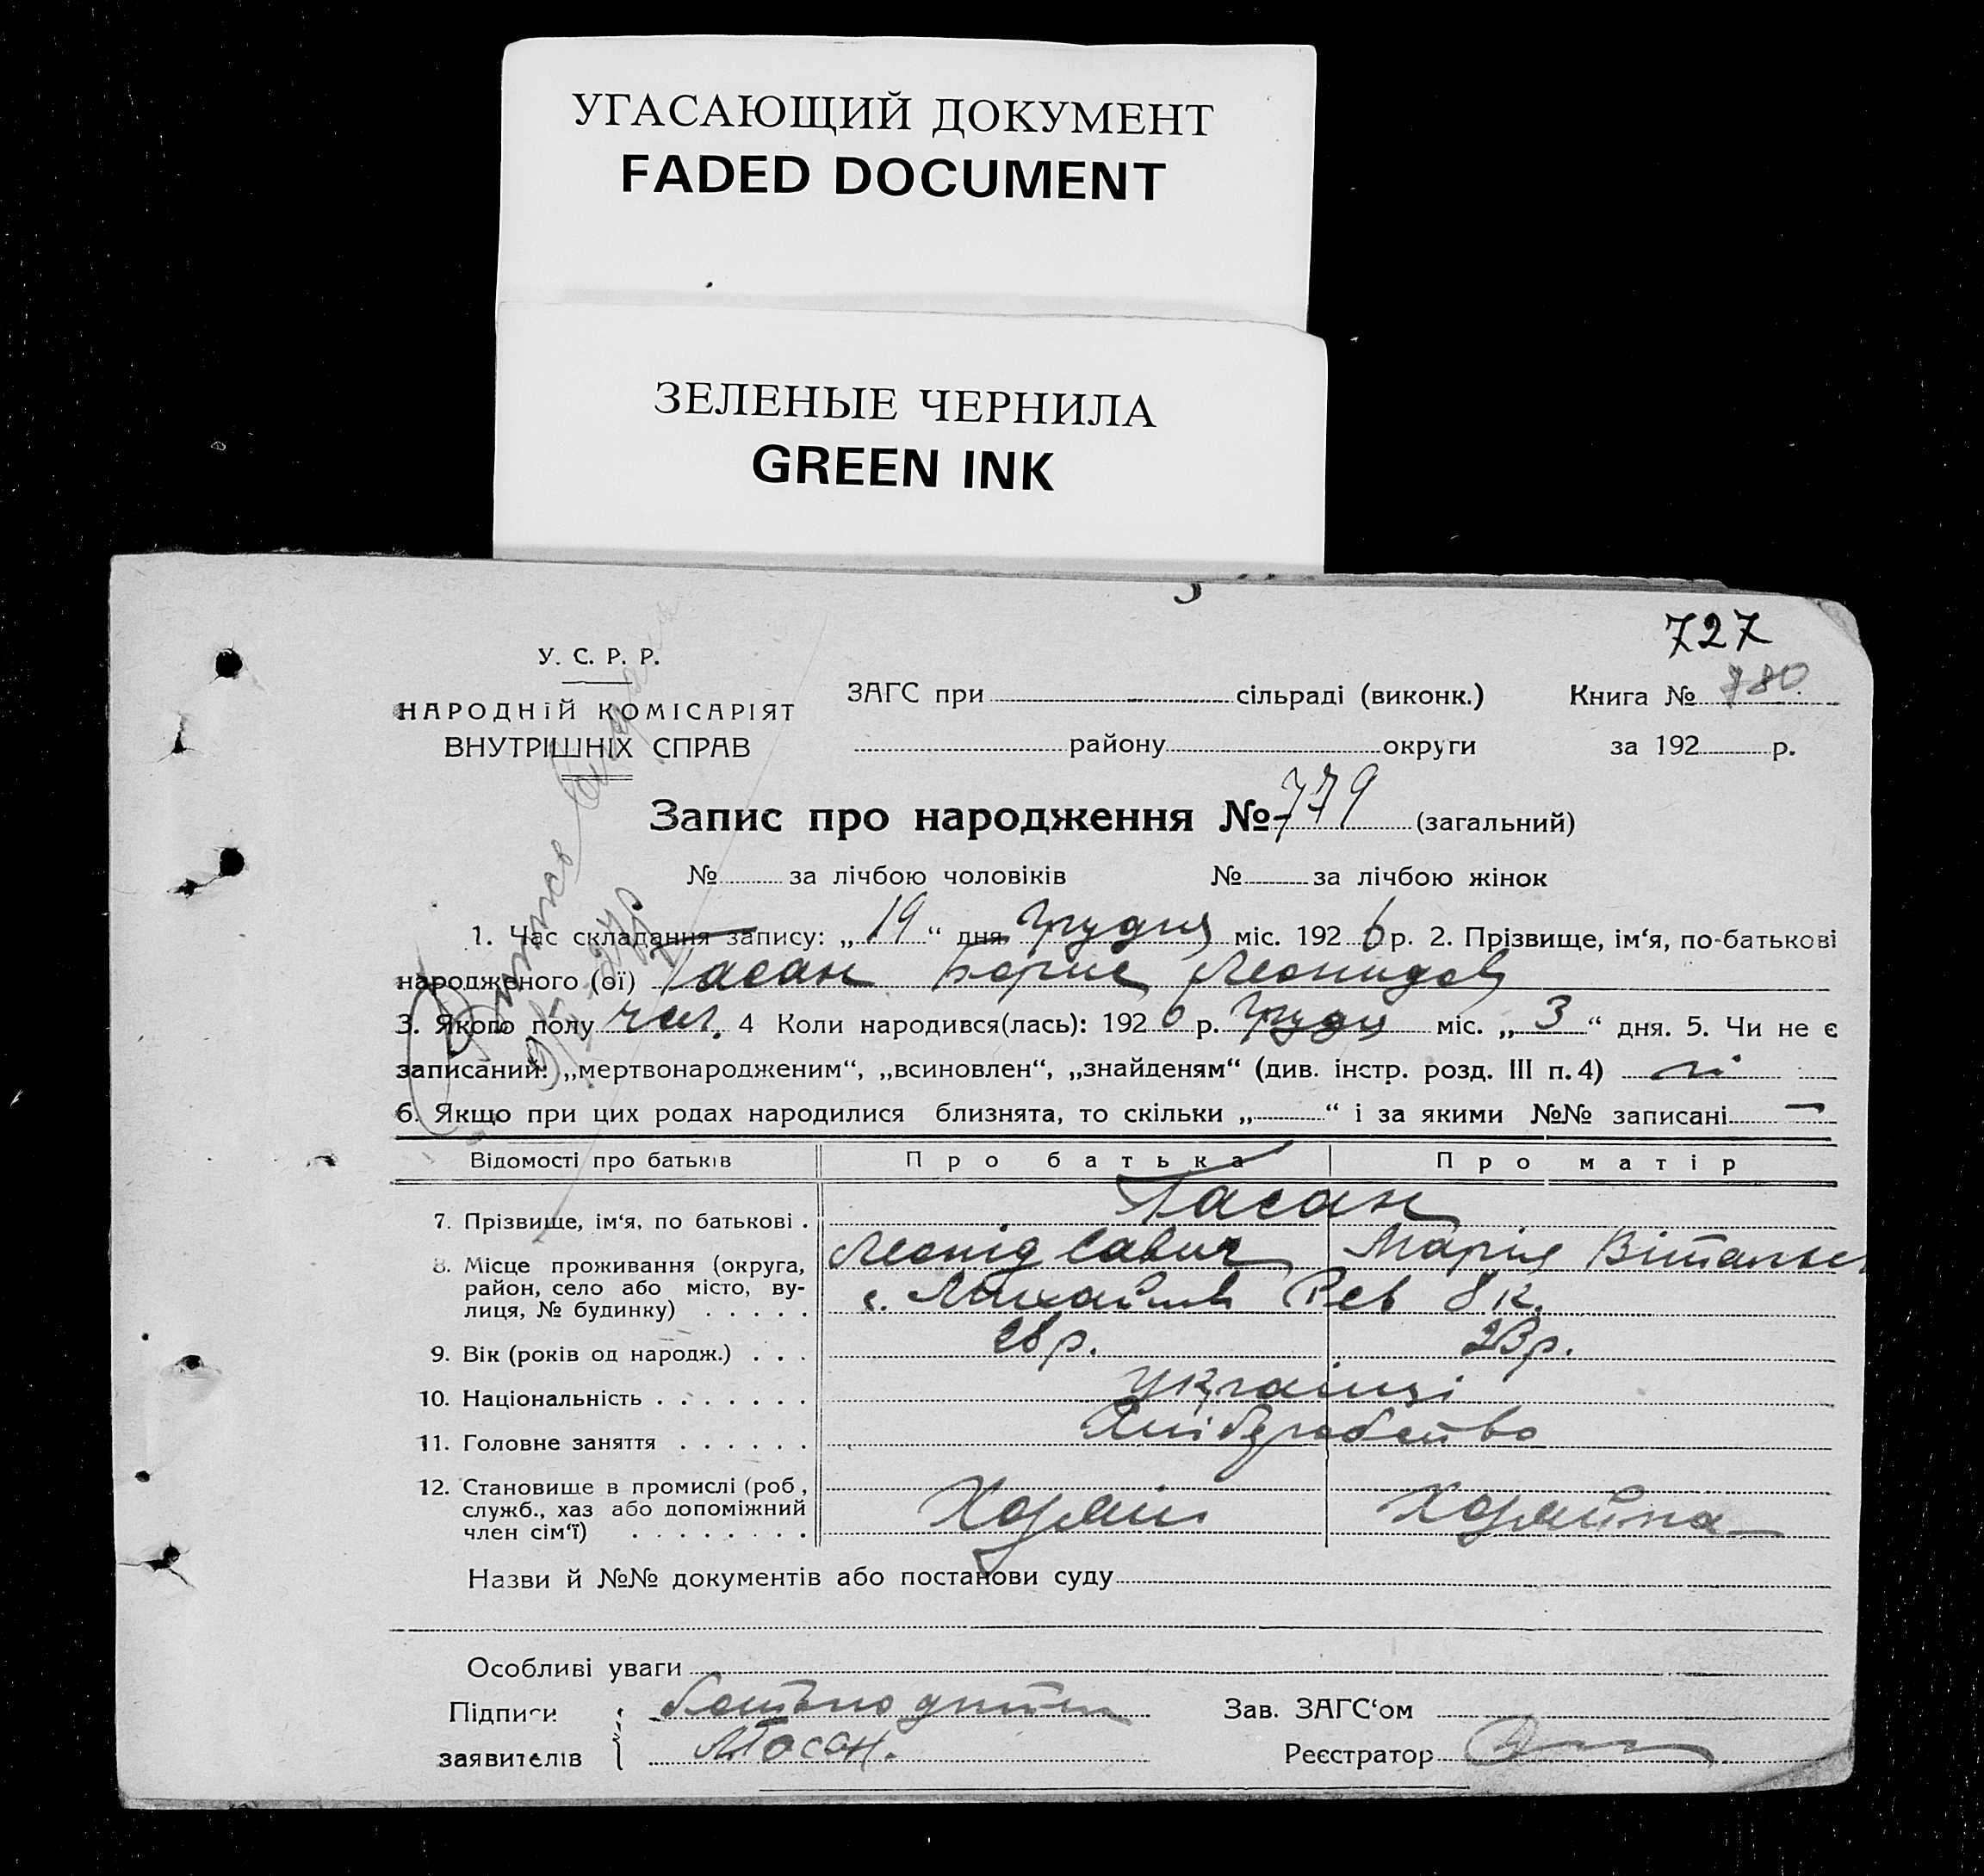 УГАСАЮЩИЙ ДОКУМЕНТ
FADED DOCUMENT
ЗЕЛЕНЫЕ ЧЕРНИЛА
GREEN INK
727
У. С. Р. Р.
НАРОДНІЙ КОМІСАРІЯТ
ВНУТРІШНІХ СПРАВ
ЗАГС при сільраді (виконк.) Книга № 780
району округи за 192 р.
Запис про народження № 779 (загальний)
№ за лічбою чоловіків № за лічбою жінок
1. Час складання запису: „ 19 “ дня Грудня міс. 192 6 р. 2. Прізвище, ім‘я, по-батькові
народженого (ої) Гасан Борис Леонидов
3. Якого полу чол. 4 Коли народився(лась): 192 6 р. Грудня міс. „ 3 “ дня. 5. Чи не є
записаний: „мертвонародженим“, „всиновлен“, „знайденям“ (див. інстр. розд. III п. 4) ні
6. Якщо при цих родах народилися близнята, то скільки „ “ і за якими №№ записані —
Відомості про батьків Про батька Про матір
7. Прізвище, ім‘я, по батькові . Гасан
Леонід Савич Марія
8. Місце проживання (округа,
район, село або місто, ву-
лиця, № будинку) . . . . . с.
9. Вік (років од народж.) . . . 28 р. 23 р.
10. Національність . . . . . . . Українці
11. Головне заняття . . . . . . Хліборобство
12. Становище в промислі (роб,
служб., хаз або допоміжний
член сім‘ї) . . . . . . . . Хазяїн Хазяйка
Назви й №№ документів або постанови суду
Особливі уваги
Підписи батько дитини Зав. ЗАГС‘ом
заявителів Л Гасан. Реєстратор